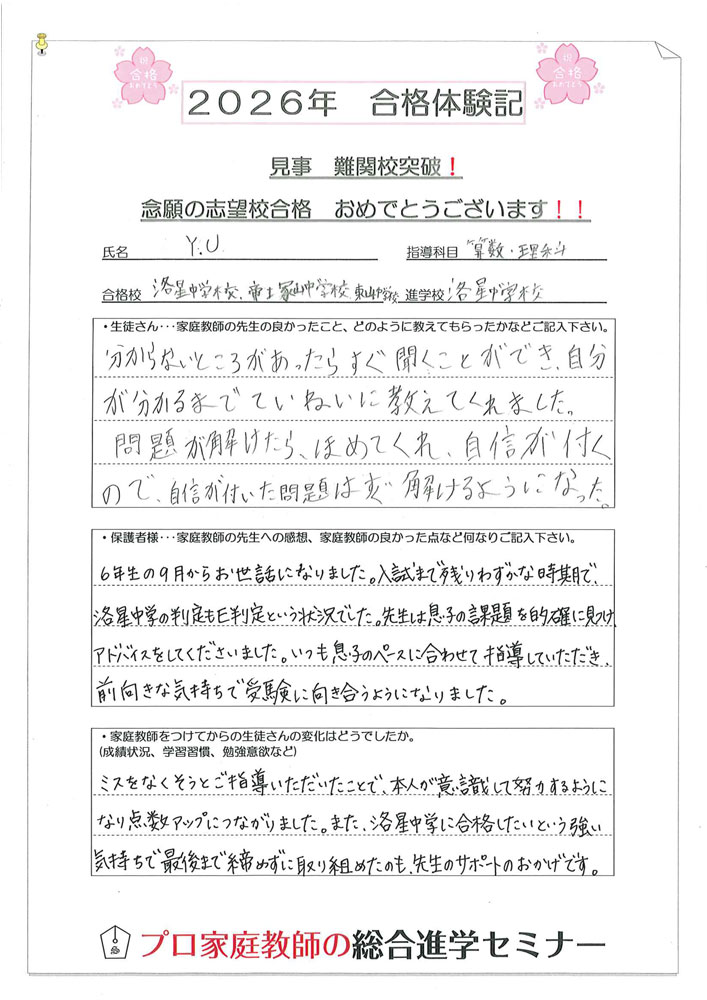 祝
合格
おめでとう
祝
合格
おめでとう
2026年 合格体験記
見事 難関校突破！
念願の志望校合格 おめでとうございます！！
氏名 Y.U 指導科目 算数・理科
合格校 洛星中学校、帝塚山中学校 東山中学校 進学校 洛星中学校
・生徒さん･･･家庭教師の先生の良かったこと、どのように教えてもらったかなどご記入下さい。
分からないところがあったらすぐ聞くことができ、自分
が分かるまでていねいに教えてくれました。
問題が解けたら、ほめてくれ、自信が付く
ので、自信が付いた問題はすぐ解けるようになった。
・保護者様･･･家庭教師の先生への感想、家庭教師の良かった点など何なりご記入下さい。
6年生の9月からお世話になりました。入試まで残りわずかな時期で、
洛星中学の判定もE判定という状況でした。先生は息子の課題を的確に見つけ、
アドバイスをしてくださいました。いつも息子のペースに合わせて指導していただき、
前向きな気持ちで受験に向き合うようになりました。
・家庭教師をつけてからの生徒さんの変化はどうでしたか。
(成績状況、学習習慣、勉強意欲など)
ミスをなくそうとご指導いただいたことで、本人が意識して努力するように
なり点数アップにつながりました。また、洛星中学に合格したいという強い
気持ちで最後まで締めずに取り組めたのも、先生のサポートのおかげです。
プロ家庭教師の総合進学セミナー